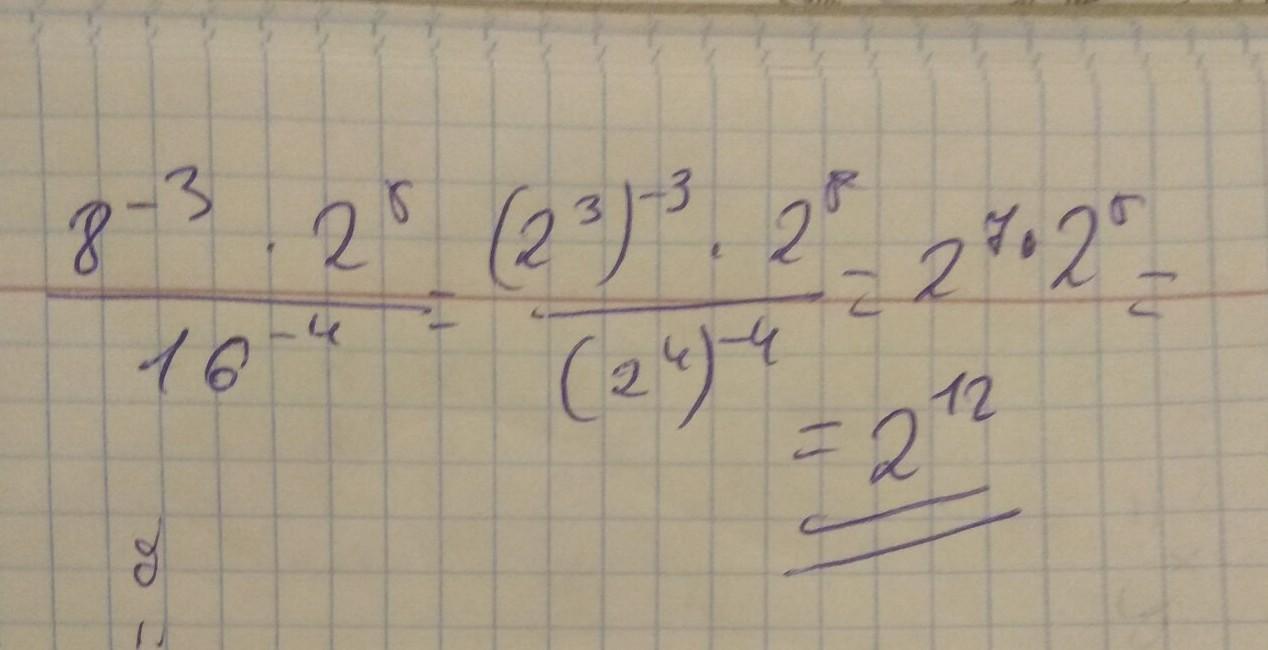 8⁻³ · 2⁵ / 16⁻⁴ = (2³)⁻³ · 2⁵ / (2⁴)⁻⁴ = 2⁷ · 2⁵ =
= 2¹²